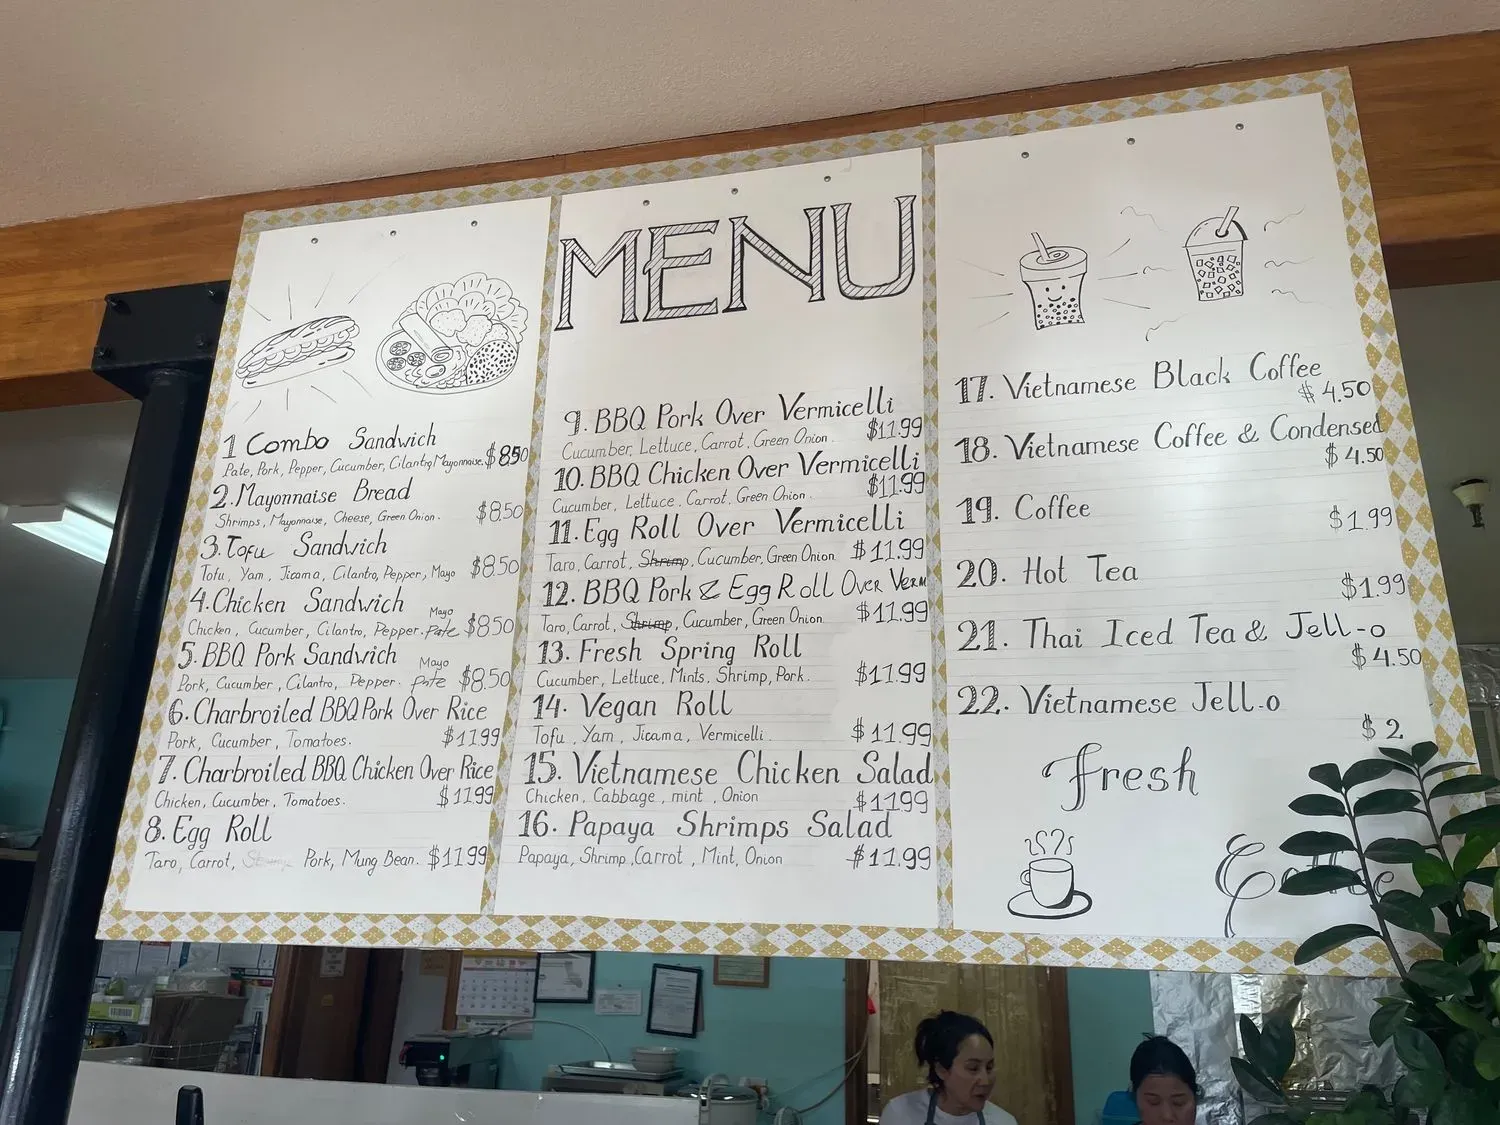 1 Combo Sandwich
Pate, Pork, Pepper, Cucumber, Cilantro, Mayonnaise. $8.50
2. Mayonnaise Bread
Shrimps, Mayonnaise, Cheese, Green Onion. $8.50
3. Tofu Sandwich
Tofu, Yam, Jicama, Cilantro, Pepper, Mayo $8.50
4. Chicken Sandwich
Mayo
Chicken, Cucumber, Cilantro, Pepper. Pate $8.50
5. BBQ Pork Sandwich
Mayo
Pork, Cucumber, Cilantro, Pepper. Pate $8.50
6. Charbroiled BBQ Pork Over Rice
Pork, Cucumber, Tomatoes. $11.99
7. Charbroiled BBQ Chicken Over Rice
Chicken, Cucumber, Tomatoes. $11.99
8. Egg Roll
Taro, Carrot, Pork, Mung Bean. $11.99
MENU
9. BBQ Pork Over Vermicelli
Cucumber, Lettuce, Carrot, Green Onion. $11.99
10. BBQ Chicken Over Vermicelli
Cucumber, Lettuce, Carrot, Green Onion. $11.99
11. Egg Roll Over Vermicelli
Taro, Carrot, Shrimp, Cucumber, Green Onion $11.99
12. BBQ Pork & Egg Roll Over Verm
Taro, Carrot, Shrimp, Cucumber, Green Onion. $11.99
13. Fresh Spring Roll
Cucumber, Lettuce, Mints, Shrimp, Pork. $11.99
14. Vegan Roll
Tofu, Yam, Jicama, Vermicelli. $11.99
15. Vietnamese Chicken Salad
Chicken, Cabbage, mint, Onion $11.99
16. Papaya Shrimps Salad
Papaya, Shrimp, Carrot, Mint, Onion $11.99
17. Vietnamese Black Coffee
$4.50
18. Vietnamese Coffee & Condensed
$4.50
19. Coffee
$1.99
20. Hot Tea
$1.99
21. Thai Iced Tea & Jell-o
$4.50
22. Vietnamese Jell-o
$2
Fresh
Coffee